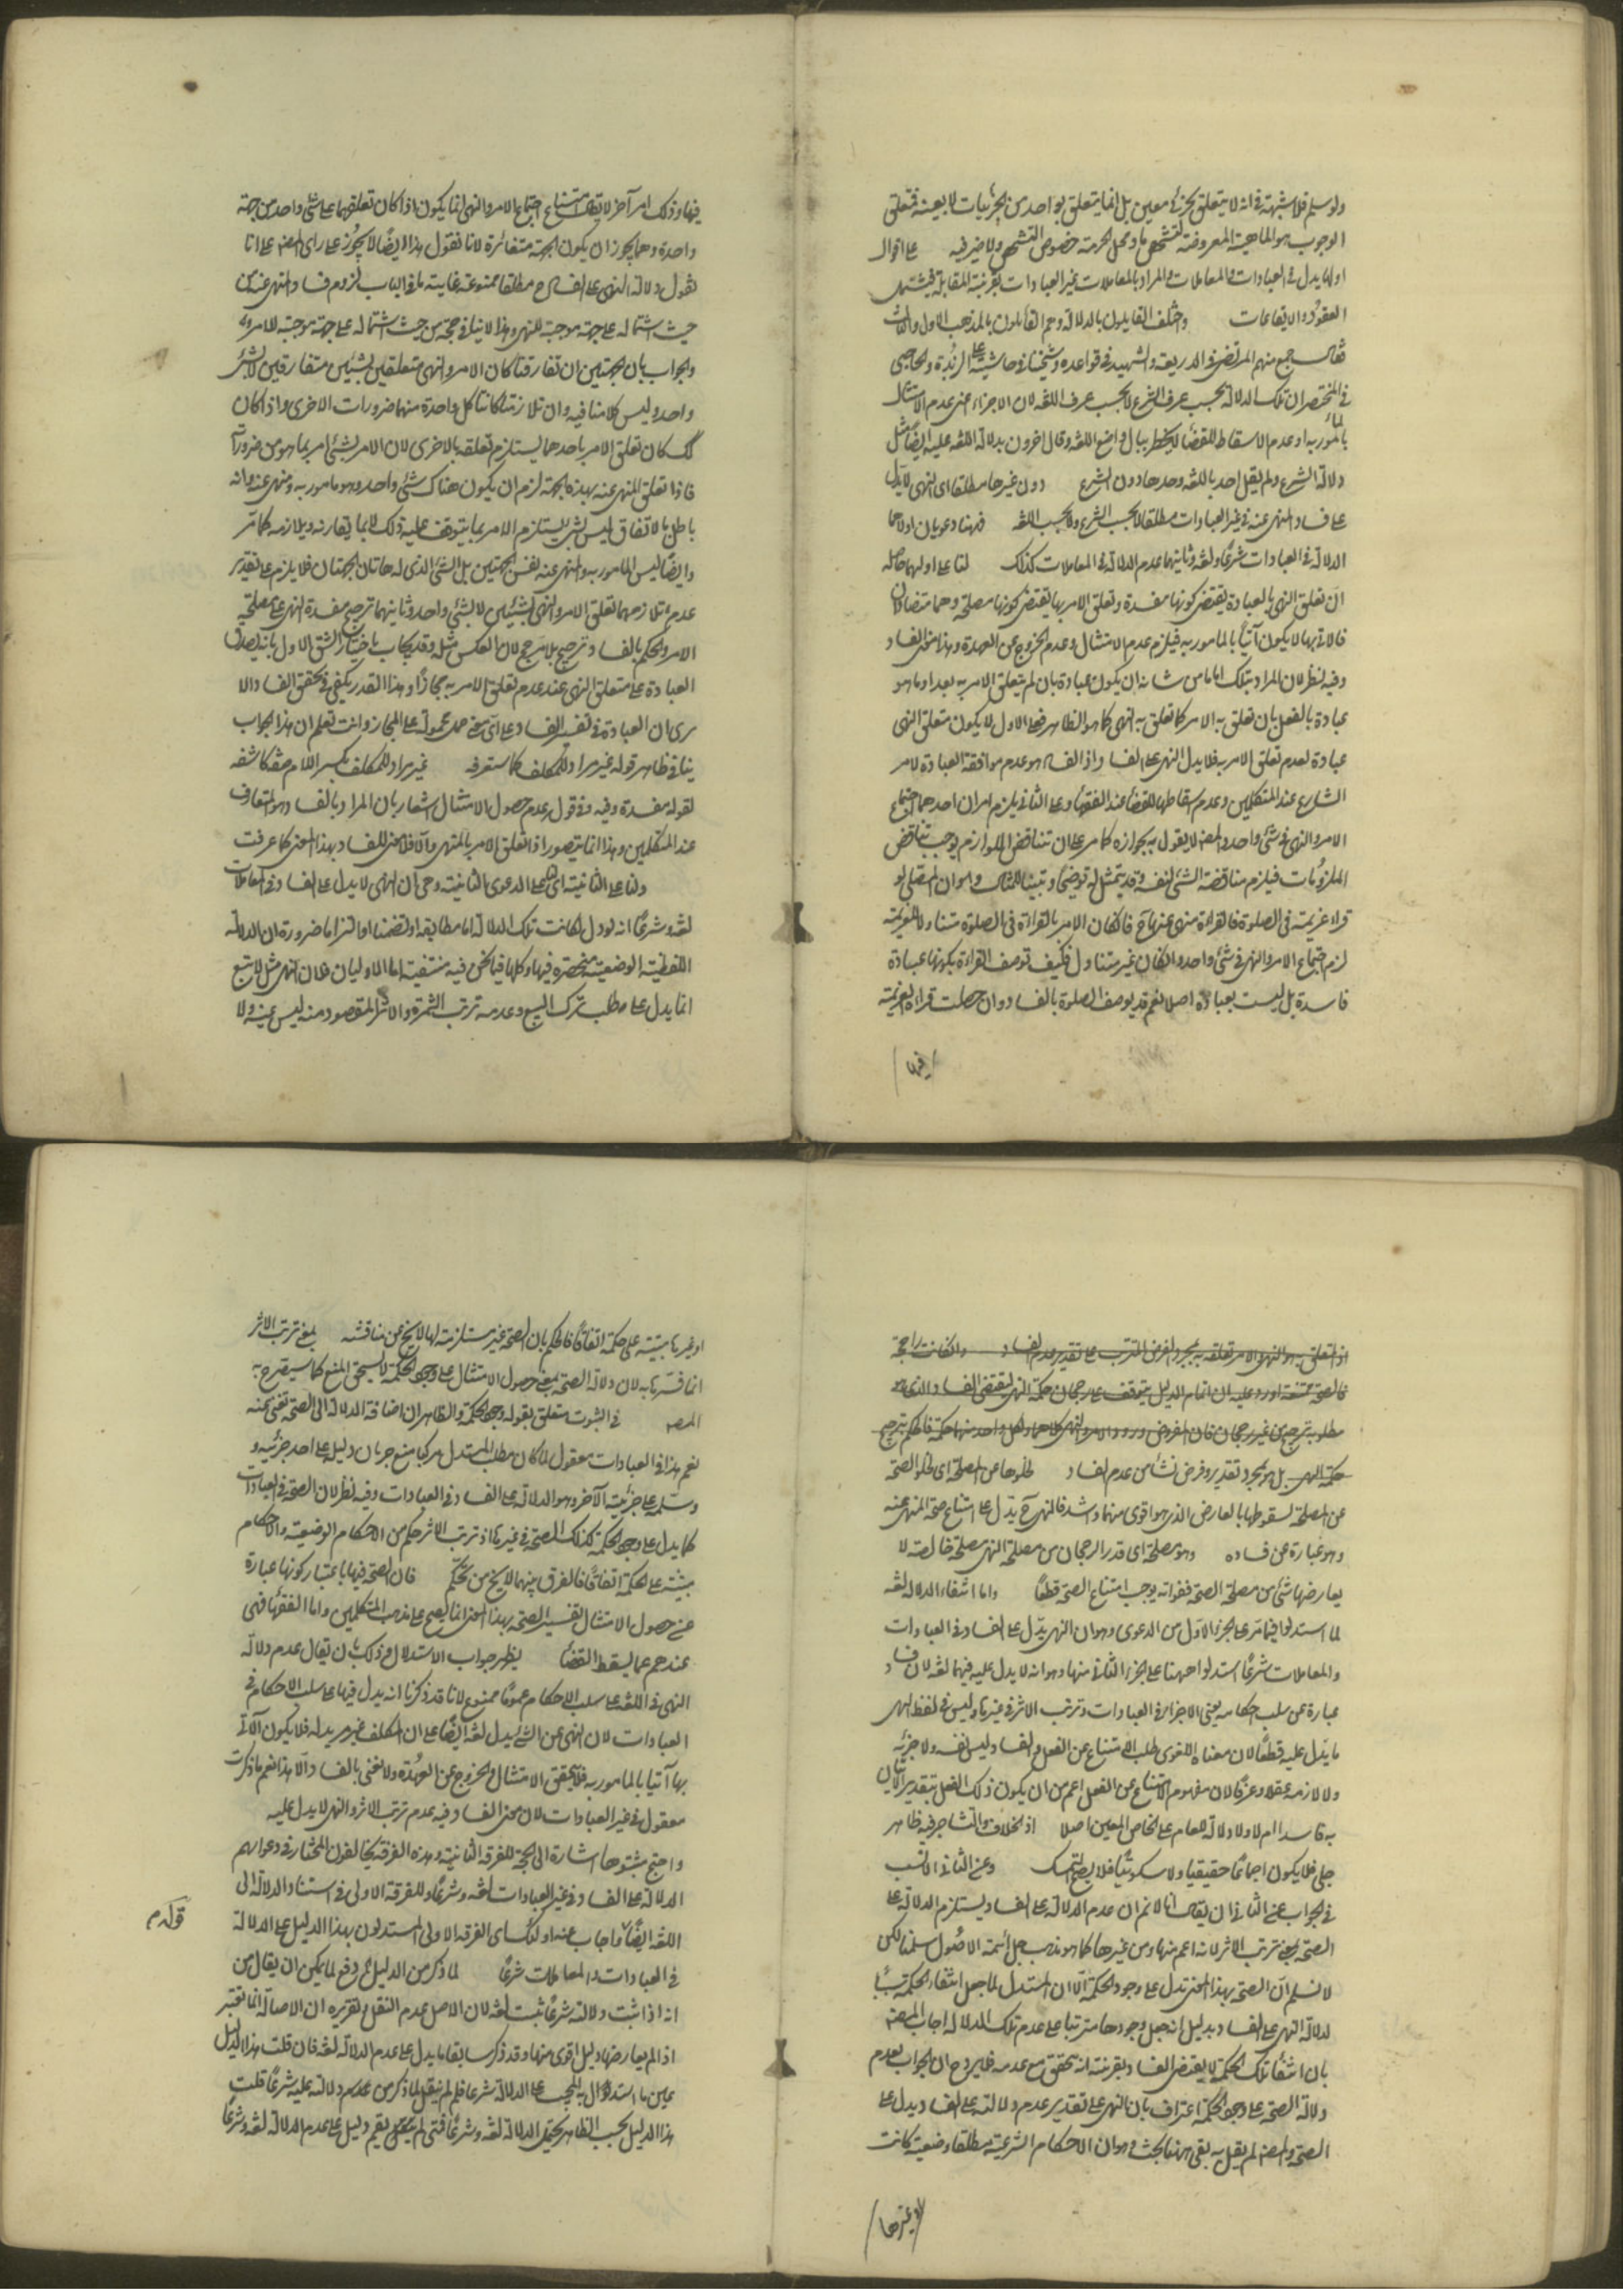 ولو سلم فلا شبهة في انه لا يتعلق بجزئي معين بل انما يتعلق بواحد من الجزئيات لا بعينه فمتعلق
الوجوب هو الماهية المعروضة لتشخص ما ومحل الحرمة خصوص التشخص ولا ضير فيه على اقوال
اولها يدل في العبادات والمعاملات والمراد بالمعاملات غير العبادات بقرينة المقابلة فيشتمل
العقود والايقاعات واختلف القايلون بالدلالة وهم القائلون بالمذهب الاول والثالث
فقال جمع منهم المرتضى في الذريعة والشهيد في قواعده وشيخنا في حاشيته على الزبدة والحاجبي
في المختصر ان تلك الدلالة بحسب عرف الشرع لا بحسب عرف اللغة لان الاجزاء اعني عدم الامتثال
بالمأمور به او عدم الاسقاط للقضاء لا يخطر ببال واضع اللغة وقال اخرون بدلالة اللغة عليه ايضا مثل
دلالة الشرع ولم يقل احد باللغة وحدها دون الشرع دون غيرها مطلقا اى النهى لا يدل
على فساد المنهى عنه في غير العبادات مطلقا لا بحسب الشرع ولا بحسب اللغة فهنا دعويان اولاهما
الدلالة في العبادات شرعا ولغة وثانيتهما عدم الدلالة في المعاملات كذلك لنا على اولهما حاصله
ان تعلق النهى بالعبادة يقتضى كونها مفسدة وتعلق الامر بها يقتضى كونها مصلحة وهما متضادان
فالاتى بها لا يكون آتيا بالمأمور به فيلزم عدم الامتثال وعدم الخروج عن العهدة وهذا معنى الفساد
وفيه نظر لان المراد بتلك اما ما من شانه ان يكون عبادة بان لم يتعلق الامر به بعد او ما هو
عبادة بالفعل بان تعلق به الامر كما تعلق به النهى كما هو الظاهر فعلى الاول لا يكون متعلق النهى
عبادة لعدم تعلق الامر به فلا يدل النهى على الفساد اذ الفساد هو عدم موافقة العبادة لامر
الشارع عند المتكلمين وعدم سقاطها للقضاء عند الفقهاء وعلى الثانى يلزم امران احدهما اجتماع
الامر والنهى في شئ واحد والمصنف لا يقول بجوازه كما مر على ان تناقض اللوازم يوجب تناقض
الملزومات فيلزم مناقضة الشئ لنفسه وقد يتمثل له توضيحا وتبيينا للمثال وهو ان المصلى لو
قراء عزيمة في الصلوة فالقراءة منهى عنها ح فان كان الامر بالقراءة في الصلوة متناولا للعزيمة
لزم اجتماع الامر والنهى في شئ واحد وان كان غير متناول فكيف توصف القراءة بكونها عبادة
فاسدة بل ليست بعبادة اصلا نعم قد يوصف الصلوة بالفساد وان حصلت قراءة العزيمة
فيها
فيها وذلك امر آخر لا يقال امتناع اجتماع الامر والنهى انما يكون اذا كان تعلقهما على شئ واحد من جهة
واحدة وهما يجوز ان يكون الجهة متغائرة لانا نقول هذا ايضا لا يجوز على راى المصنف على انا
نقول دلالة النهى على الفساد ح مطلقا ممنوعة غاية ما في الباب لزوم فساد المنهى عنه من
حيث اشتماله على جهة موجبة للنهى وهذا لا ينافى صحة من حيث اشتماله على جهة موجبة للامر به
والجواب بان الجهتين ان تفارقتا كان الامر والنهى متعلقين بشيئين متفارقين لا بشئ
واحد وليس كلامنا فيه وان تلازمتا كانتا كل واحدة منهما ضرورات الاخرى واذا كان
كك كان تعلق الامر باحدهما يستلزم تعلقه بالاخرى لان الامر بشئ امر بما هو من ضروراته
فاذا تعلق المنهى عنه بهذه الجهة لزم ان يكون هناك شئ واحد وهو مامور به ومنهى عنه وانه
باطل بالاتفاق ليس بشئ يستلزم الامر بما يتوقف عليه ذلك لا بما يقارنه ويلازمه كما مر
وايضا ليس المامور به والمنهى عنه نفس الجهتين بل الشئ الذى له هاتان الجهتان فلا يلزم على تقدير
عدم تلازمهما تعلق الامر والنهى بشيئين لا بشئ واحد وثانيهما ترجيح مفسدة النهى على مصلحة
الامر والحكم بالفساد ترجيح بلا مرجح لان العكس مثله وقد يجاب باختيار الشق الاول بانه يصدق
العبادة على متعلق النهى عند عدم تعلق الامر به مجازا وهذا القدر يكفى في تحقق الفساد الا
يرى ان العبادة في تفسير الفساد على اى معنى حمل محمولة على المجاز وانت تعلم ان هذا الجواب
ينافى ظاهر قوله غير مراد للمكلف كما ستعرفه غير مراد للمكلف بكسر اللام صفة كاشفة
لقوله مفسدة وفيه وفى قوله عدم حصول الامتثال اشعار بان المراد بالفساد هو المتعارف
عند المتكلمين وهذا انما يتصور اذا تعلق الامر بالمنهى والا فلا معنى للفساد بهذا المعنى كما عرفت
ولنا على الثانية اى على الدعوى الثانية وهى ان النهى لا يدل على الفساد في المعاملات
لغة وشرعا انه لو دل لكانت تلك الدلالة اما مطابقة او تضمنا او التزاما ضرورة ان الدلالة
اللفظية الوضعية منحصرة فيها وكلها فيما نحن فيه منتفية اما الاوليان فلان النهى مثل لا تبع
انما يدل على مطلب ترك البيع وعدمه ترتب الثمرة والاثر المقصود منه ليس عينه ولا
اذ المتعلق به النهى والامر تعلقه به بمجرد الفرض المترتب على تقدير عدم الفساد وان كانت راجحة
فالصحة ممتنعة اورد عليه ان اتمام الدليل يتوقف على رجحان حكمة النهى ليقتضى الفساد الذى هو
مطلوبه ترجيح من غير رجحان فان المفروض ورود الامر والنهى كلاهما ولكل واحد منهما حكمة فالحكم بترجيح
حكمة النهى بل هو بمجرد تقدير وفرض نشأ من عدم الفساد لخلوها عن المصلحة اى لخلو الصحة
عن المصلحة لسقوطها بالمعارض الذى هو اقوى منها واشد فالنهى ح يدل على امتناع صحة المنهى عنه
وهو عبارة عن فساده وهو مصلحة اى قدر الرجحان من مصلحة النهى مصلحة خالصة لا
يعارضها شئ من مصلحة الصحة ففواته يوجب امتناع الصحة قطعا واما انتفاء الدلالة لغة
لما استدلوا فيما مر على الجزء الاول من الدعوى وهو ان النهى يدل على الفساد في العبادات
والمعاملات شرعا استدلوا ههنا على الجزء الثانى منها وهو انه لا يدل عليه فيهما لغة لان فساد
عبارة عن سلب احكامه يعنى الاجزاء في العبادات وترتب الاثر في غيرها وليس في لفظ النهى
ما يدل عليه قطعا لان معناه اللغوى طلب الامتناع عن الفعل والفساد ليس نفسه ولا جزئه
ولا لازمه عقلا وعرفا لان مفهوم الامتناع عن الفعل اعم من ان يكون ذلك الفعل بتقدير الاتيان
به فاسدا ام لا ولا دلالة للعام على الخاص المعين اصلا اذ الخلاف والتشاجر فيه ظاهر
جلى فلا يكون اجماعا حقيقيا ولا سكوتيا فلا يصلح للتمسك وعن الثانى الانسب
في الجواب عن الثانى ان يقال انا لا نم ان عدم الدلالة على الفساد يستلزم الدلالة على
الصحة بمعنى ترتب الاثر لانه اعم منها ومن غيرها كما هو مذهب جل ائمة الاصول سلمنا لكن
لا نسلم ان الصحة بهذا المعنى تدل على وجود الحكمة الا ان المستدل لما جعل انتفاء الحكمة مترتبا
لدلالة النهى على الفساد بدليل انه جعل وجودها مترتبا على عدم تلك الدلالة اجاب المصنف
بان انتفاء تلك الحكمة لا يقتضى الفساد بقرينة انه تحقق مع عدمه فلا يروح ان الجواب بعدم
دلالة الصحة على وجود الحكمة اعتراف بان النهى على تقدير عدم دلالته على الفساد يدل على
الصحة والمصنف لم يقل به بقى ههنا بحث وهو ان الاحكام الشرعية مطلقا وضعية كانت
او غيرها
او غيرها مبتنية على حكمة اتفاقا فالحكم بان الصحة غير مستلزمة لها لا يخ عن مناقشة بمعنى ترتب الاثر
انما فسرنا به لان دلالة الصحة بمعنى حصول الامتثال على وجود الحكمة لا يستحق المنع كما سيصرح به
المصنف في الثبوت متعلق بقوله وجود الحكمة والظاهر ان اضافة الدلالة الى الصحة تغنى عنه
نعم هذا في العبادات معقول لما كان مطلب المستدل مركبا منع جريان دليله على احد جزئيه و
وسلمه على جزئيته الآخر وهو الدلالة على الفساد في العبادات وفيه نظر لان الصحة في العبادات
كما يدل على وجود الحكمة كذلك الصحة في غيرها اذ ترتب الاثر حكم من الاحكام الوضعية والاحكام
مبنية على الحكمة اتفاقا فالفرق بينهما لا يخ من تحكم فان الصحة فيها باعتبار كونها عبارة
عن حصول الامتثال تفسير الصحة بهذا المعنى انما يصح على مذهب المتكلمين واما الفقهاء فهى
عندهم عما يسقط القضاء يظهر جواب الاستدلال وذلك بان يقال عدم دلالة
النهى في اللغة على سلب الاحكام عموما ممنوع لانا قد ذكرنا انه يدل فيها على سلب الاحكام في
العبادات لان النهى عن الشئ يدل لغة ايضا على ان المكلف غير مريد له فلا يكون الآتى
بها آتيا بالمامور به فلا يتحقق الامتثال والخروج عن العهدة ولا نعنى بالفساد الا هذا نعم ما ذكرت
معقول في غير العبادات لان معنى الفساد فيه عدم ترتب الاثر والنهى لا يدل عليه
واحتج مثبتوها اشارة الى الحجة للفرقة الثانية وهذه الفرقة يخالفون المختار في دعواهم
الدلالة على الفساد في غير العبادات لغة وشرعا وللفرقة الاولى في استناد الدلالة الى
اللغة ايضا واجاب عنه اولئك اى الفرقة الاولى المستدلون بهذا الدليل على الدلالة
قوله م
في العبادات والمعاملات شرعا لما ذكر من الدليل ثم دفع لما يمكن ان يقال من
انه اذا ثبت دلالته شرعا ثبت لغة لان الاصل عدم النقل وتقريره ان الاصالة انما تعتبر
اذا لم يعارضها دليل اقوى منها وقد ذكر سابقا ما يدل على عدم الدلالة لغة فان قلت هذا الدليل
عين ما استدل به المجيب على الدلالة شرعا فلم لم يقل لما ذكر من عدم دلالته عليه شرعا قلت
هذا الدليل بحسب الظاهر يحتمل الدلالة لغة وشرعا فمتى لم يقم دليل على عدم الدلالة لغة وشرعا